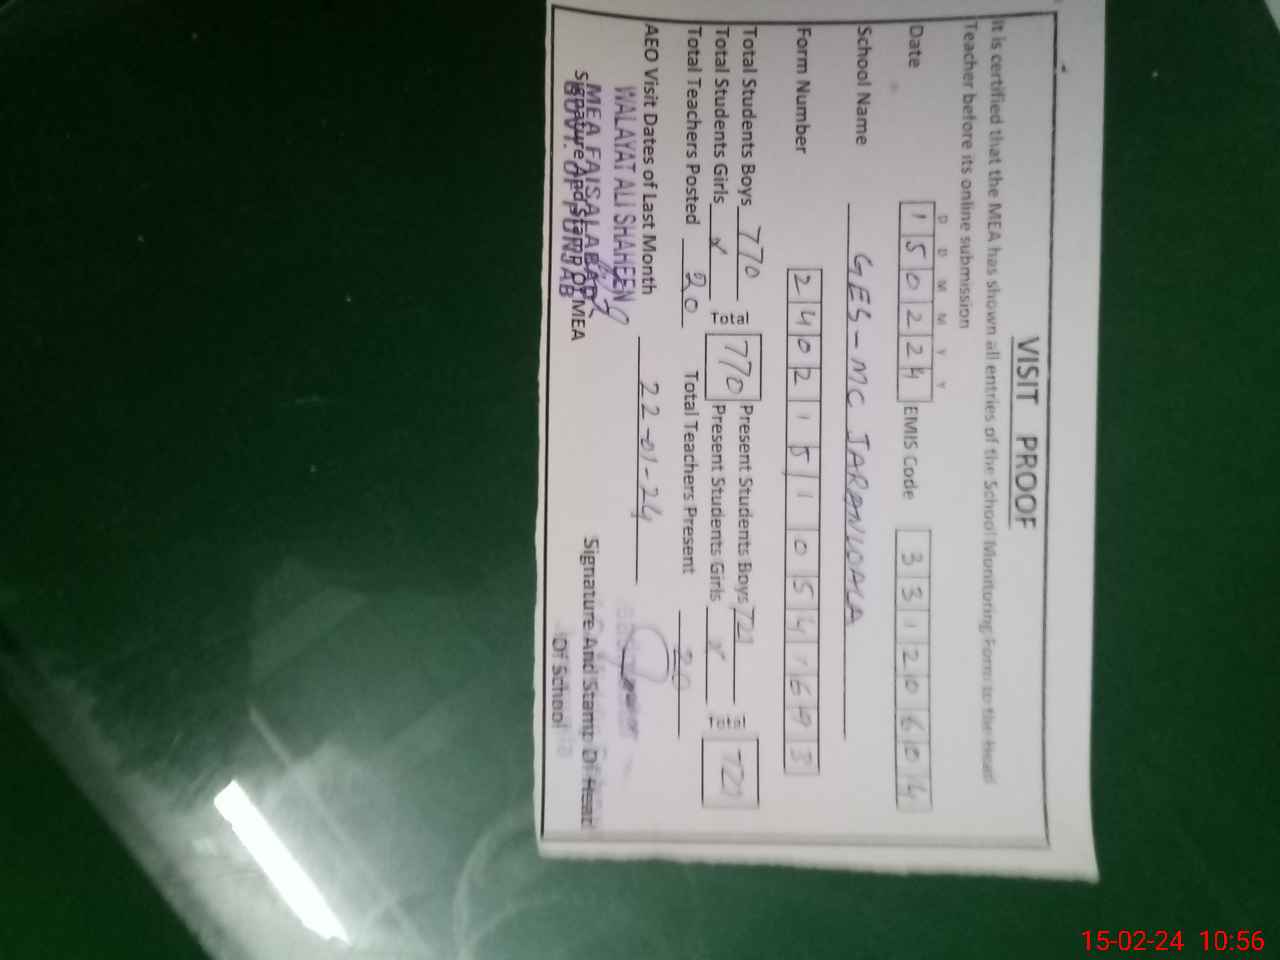 VISIT PROOF
It is certified that the MEA has shown all entries of the School Monitoring Form to the Head
Teacher before its online submission
D D M M Y Y
Date 1 5 0 2 2 4 EMIS Code 3 3 1 2 0 6 0 4
School Name GES-MC JARANWALA
Form Number 2 4 0 2 1 5 1 0 5 4 1 6 9 3
Total Students Boys 770 Present Students Boys 721
Total Students Girls x 770 Present Students Girls x 721
Total Teachers Posted 20 Total Teachers Present 20
AEO Visit Dates of Last Month 22-01-24
WALAYAT ALI SHAHEEN
MEA FAISALABAD
GOVT. OF PUNJAB
Signature And Stamp Of MEA
Signature And Stamp Of Head
Of School
15-02-24 10:56